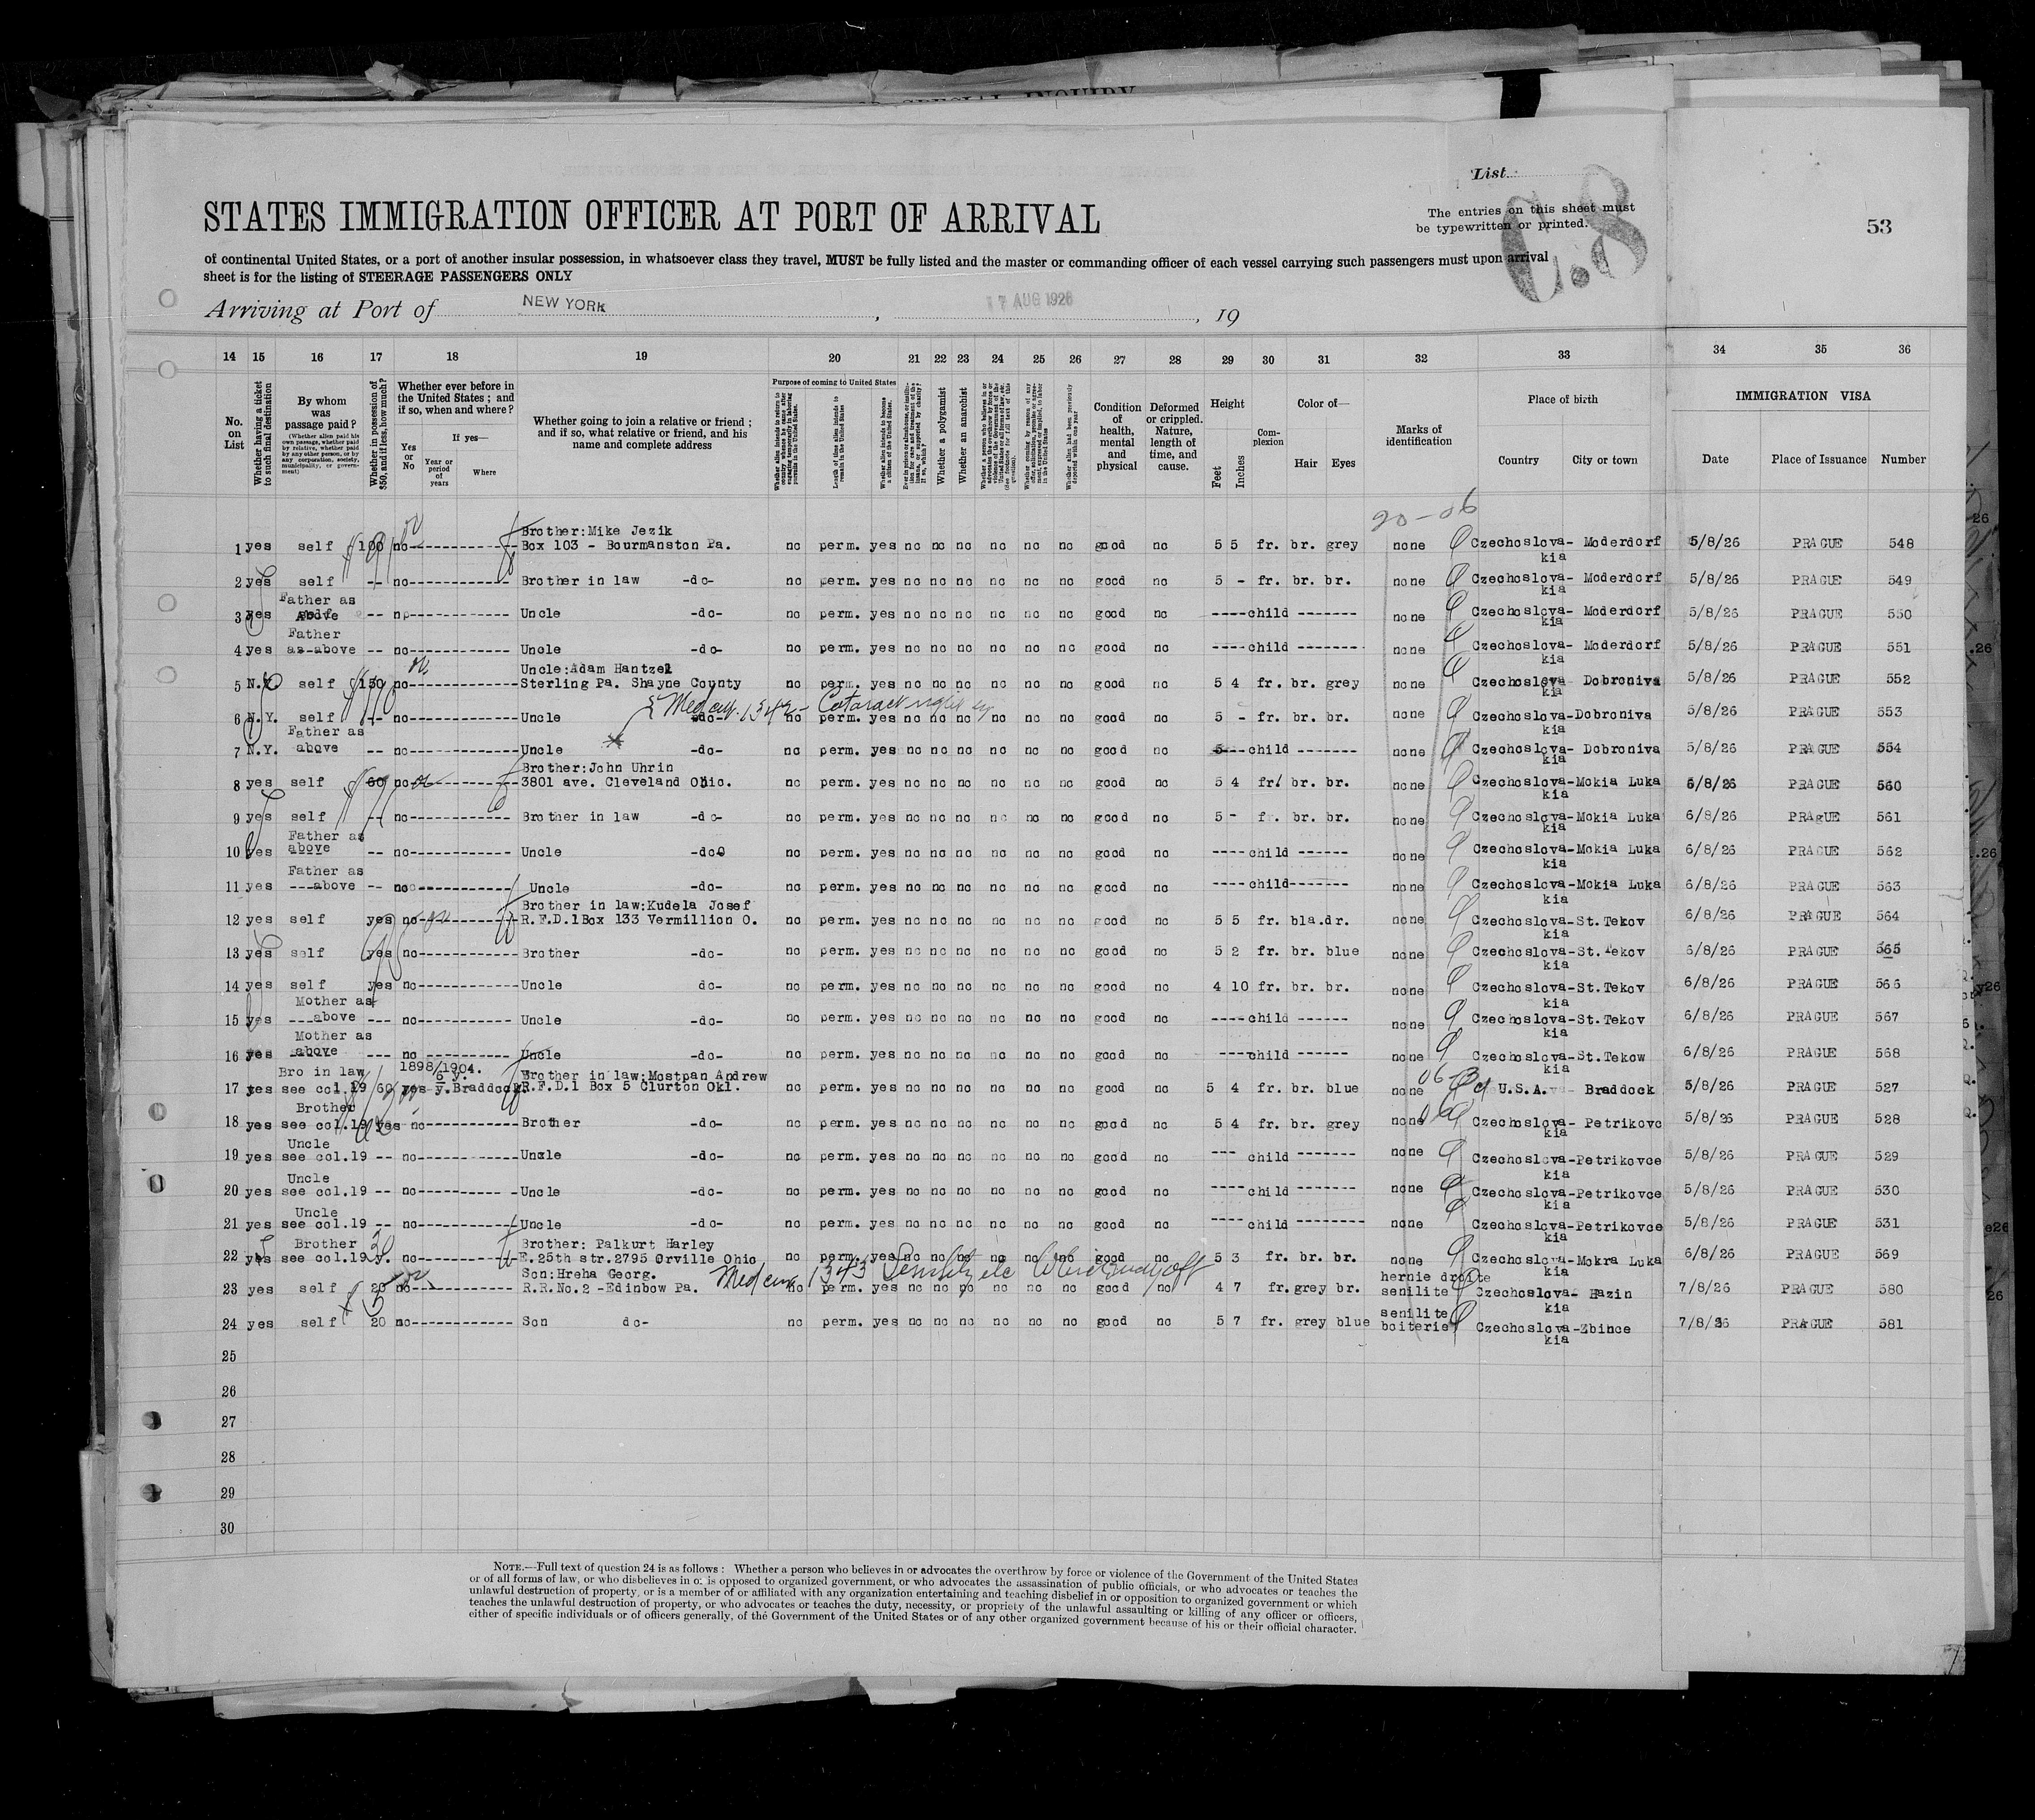 List
C.8
STATES IMMIGRATION OFFICER AT PORT OF ARRIVAL
The entries on this sheet must
be typewritten or printed.
53
of continental United States, or a port of another insular possession, in whatsoever class they travel, MUST be fully listed and the master or commanding officer of each vessel carrying such passengers must upon arrival
sheet is for the listing of STEERAGE PASSENGERS ONLY
Arriving at Port of NEW YORK , 17 AUG 1926 , 19
14 15 16 17 18 19 20 21 22 23 24 25 26 27 28 29 30 31 32 33 34 35 36
No. on List
Whether having a ticket to such final destination
By whom was passage paid?
(Whether alien paid his own passage, whether paid by relative, whether paid by any other person, or by any corporation, society, municipality, or government)
Whether in possession of $50, and if less, how much?
Whether ever before in the United States; and if so, when and where?
Yes or No
If yes—
Year or period of years
Where
Whether going to join a relative or friend; and if so, what relative or friend, and his name and complete address
Purpose of coming to United States
Length of time alien intends to remain in the United States
Whether alien intends to become a citizen of the United States.
Whether a polygamist
Whether an anarchist
Whether alien had been previously deported within one year
Condition of health, mental and physical
Deformed or crippled. Nature, length of time, and cause.
Height
Feet
Inches
Complexion
Color of—
Hair
Eyes
Marks of identification
Place of birth
Country
City or town
IMMIGRATION VISA
Date
Place of Issuance
Number
20-06
Brother:Mike Jezik
1 yes self 100 no Box 103 - Bourmanston Pa. no perm. yes no no no no no no good no 5 5 fr. br. grey none Czechoslova-kia Moderdorf 5/8/26 PRAGUE 548
2 yes self -- no Brother in law -do- no perm. yes no no no no no no good no 5 - fr. br. br. none Czechoslova-kia Moderdorf 5/8/26 PRAGUE 549
3 yes Father as Above -- no Uncle -do- no perm. yes no no no no no no good no ----child ------- none Czechoslova-kia Moderdorf 5/8/26 PRAGUE 550
4 yes Father as above -- no Uncle -do- no perm. yes no no no no no no good no ----child ------- none Czechoslova-kia Moderdorf 5/8/26 PRAGUE 551
Uncle:Adam Hantzel
5 N.Y. self 150 no Sterling Pa. Shayne County no perm. yes no no no no no no good no 5 4 fr. br. grey none Czechoslova-kia Dobroniva 5/8/26 PRAGUE 552
Med cert. 1342 - Cataract right eye
6 N.Y. self -- no Uncle -do- no perm. yes no no no no no no good no 5 - fr. br. br. none Czechoslova-kia Dobroniva 5/8/26 PRAGUE 553
7 N.Y. Father as above -- no Uncle -do- no perm. yes no no no no no no good no child ------- none Czechoslova-kia Dobroniva 5/8/26 PRAGUE 554
Brother:John Uhrin
8 yes self 60 no 3801 ave. Cleveland Ohio. no perm. yes no no no no no no good no 5 4 fr. br. br. none Czechoslova-kia Mokia Luka 6/8/26 PRAGUE 560
9 yes self -- no Brother in law -do- no perm. yes no no no no no no good no 5 - fr. br. br. none Czechoslova-kia Mokia Luka 6/8/26 PRAgUE 561
10 yes Father as above -- no Uncle -do- no perm. yes no no no no no no good no ----child ------ none Czechoslova-kia Mokia Luka 6/8/26 PRAGUE 562
11 yes Father as ---above -- no Uncle -do- no perm. yes no no no no no no good no ----child------- none Czechoslova-kia Mokia Luka 6/8/26 PRAGUE 563
Brother in law:Kudela Josef
12 yes self yes no R.F.D.1Box 133 Vermillion O. no perm. yes no no no no no no good no 5 5 fr. bla.dr. none Czechoslova-kia St.Tekov 6/8/26 PRAGUE 564
13 yes self yes no Brother -do- no perm. yes no no no no no no good no 5 2 fr. br. blue none Czechoslova-kia St.Tekov 6/8/26 PRAGUE 565
14 yes self yes no Uncle do- no perm. yes no no no no no no good no 4 10 fr. br. br. none Czechoslova-kia St.Tekov 6/8/26 PRAGUE 566
15 yes Mother as ---above --- no Uncle -do- no perm. yes no no no no no no good no ----child ------ none Czechoslova-kia St.Tekov 6/8/26 PRAGUE 567
16 yes Mother as above --- no Uncle -do- no perm. yes no no no no no no good no ----child ------ none Czechoslova-kia St.Tekow 6/8/26 PRAGUE 568
Bro in law 1898/1904. 6 y. Brother in law:Mostpan Andrew
17 yes see col.19 60 yes y.Braddock R.F.D.1 Box 5 Clurton Okl. no perm. yes no no no no no no good no 5 4 fr. br. blue none U.S.A. Braddock 5/8/26 PRAGUE 527
18 yes Brother see col.19 yes no Brother -do- no perm. yes no no no no no no good no 5 4 fr. br. grey none Czechoslova-kia Petrikovc 5/8/26 PRAGUE 528
19 yes Uncle see col.19 -- no Uncle -do- no perm. yes no no no no no no good no --- child ------- none Czechoslova-kia Petrikovce 5/8/26 PRAGUE 529
20 yes Uncle see col.19 -- no Uncle -do- no perm. yes no no no no no no good no ---- child ------- none Czechoslova-kia Petrikovce 5/8/26 PRAGUE 530
21 yes Uncle see col.19 -- no Uncle -do- no perm. yes no no no no no no good no ---- child -------- none Czechoslova-kia Petrikovce 5/8/26 PRAGUE 531
Brother: Palkurt Harley
22 yes Brother see col.19 no E.25th str.2795 Orville Ohio no perm. yes no no no no no no good no 5 3 fr. br. br. none Czechoslova-kia Mokra Luka 6/8/26 PRAGUE 569
Med cert 1343
Son:Hreha Georg.
23 yes self 20 no R.R.No.2 -Edinbow Pa. no perm. yes no no no no no no good no 4 7 fr. grey br. hernie droite senilite Czechoslova-kia Hazin 7/8/26 PRAGUE 580
24 yes self 20 no Son do- no perm. yes no no no no no no good no 5 7 fr. grey blue senilite boiterie Czechoslova-kia Zbince 7/8/26 PRAGUE 581
25
26
27
28
29
30
NOTE.—Full text of question 24 is as follows: Whether a person who believes in or advocates the overthrow by force or violence of the Government of the United States
or of all forms of law, or who disbelieves in or is opposed to organized government, or who advocates the assassination of public officials, or who advocates or teaches the
unlawful destruction of property, or is a member of or affiliated with any organization entertaining and teaching disbelief in or opposition to organized government or which
teaches the unlawful destruction of property, or who advocates or teaches the duty, necessity, or propriety of the unlawful assaulting or killing of any officer or officers,
either of specific individuals or of officers generally, of the Government of the United States or of any other organized government because of his or their official character.